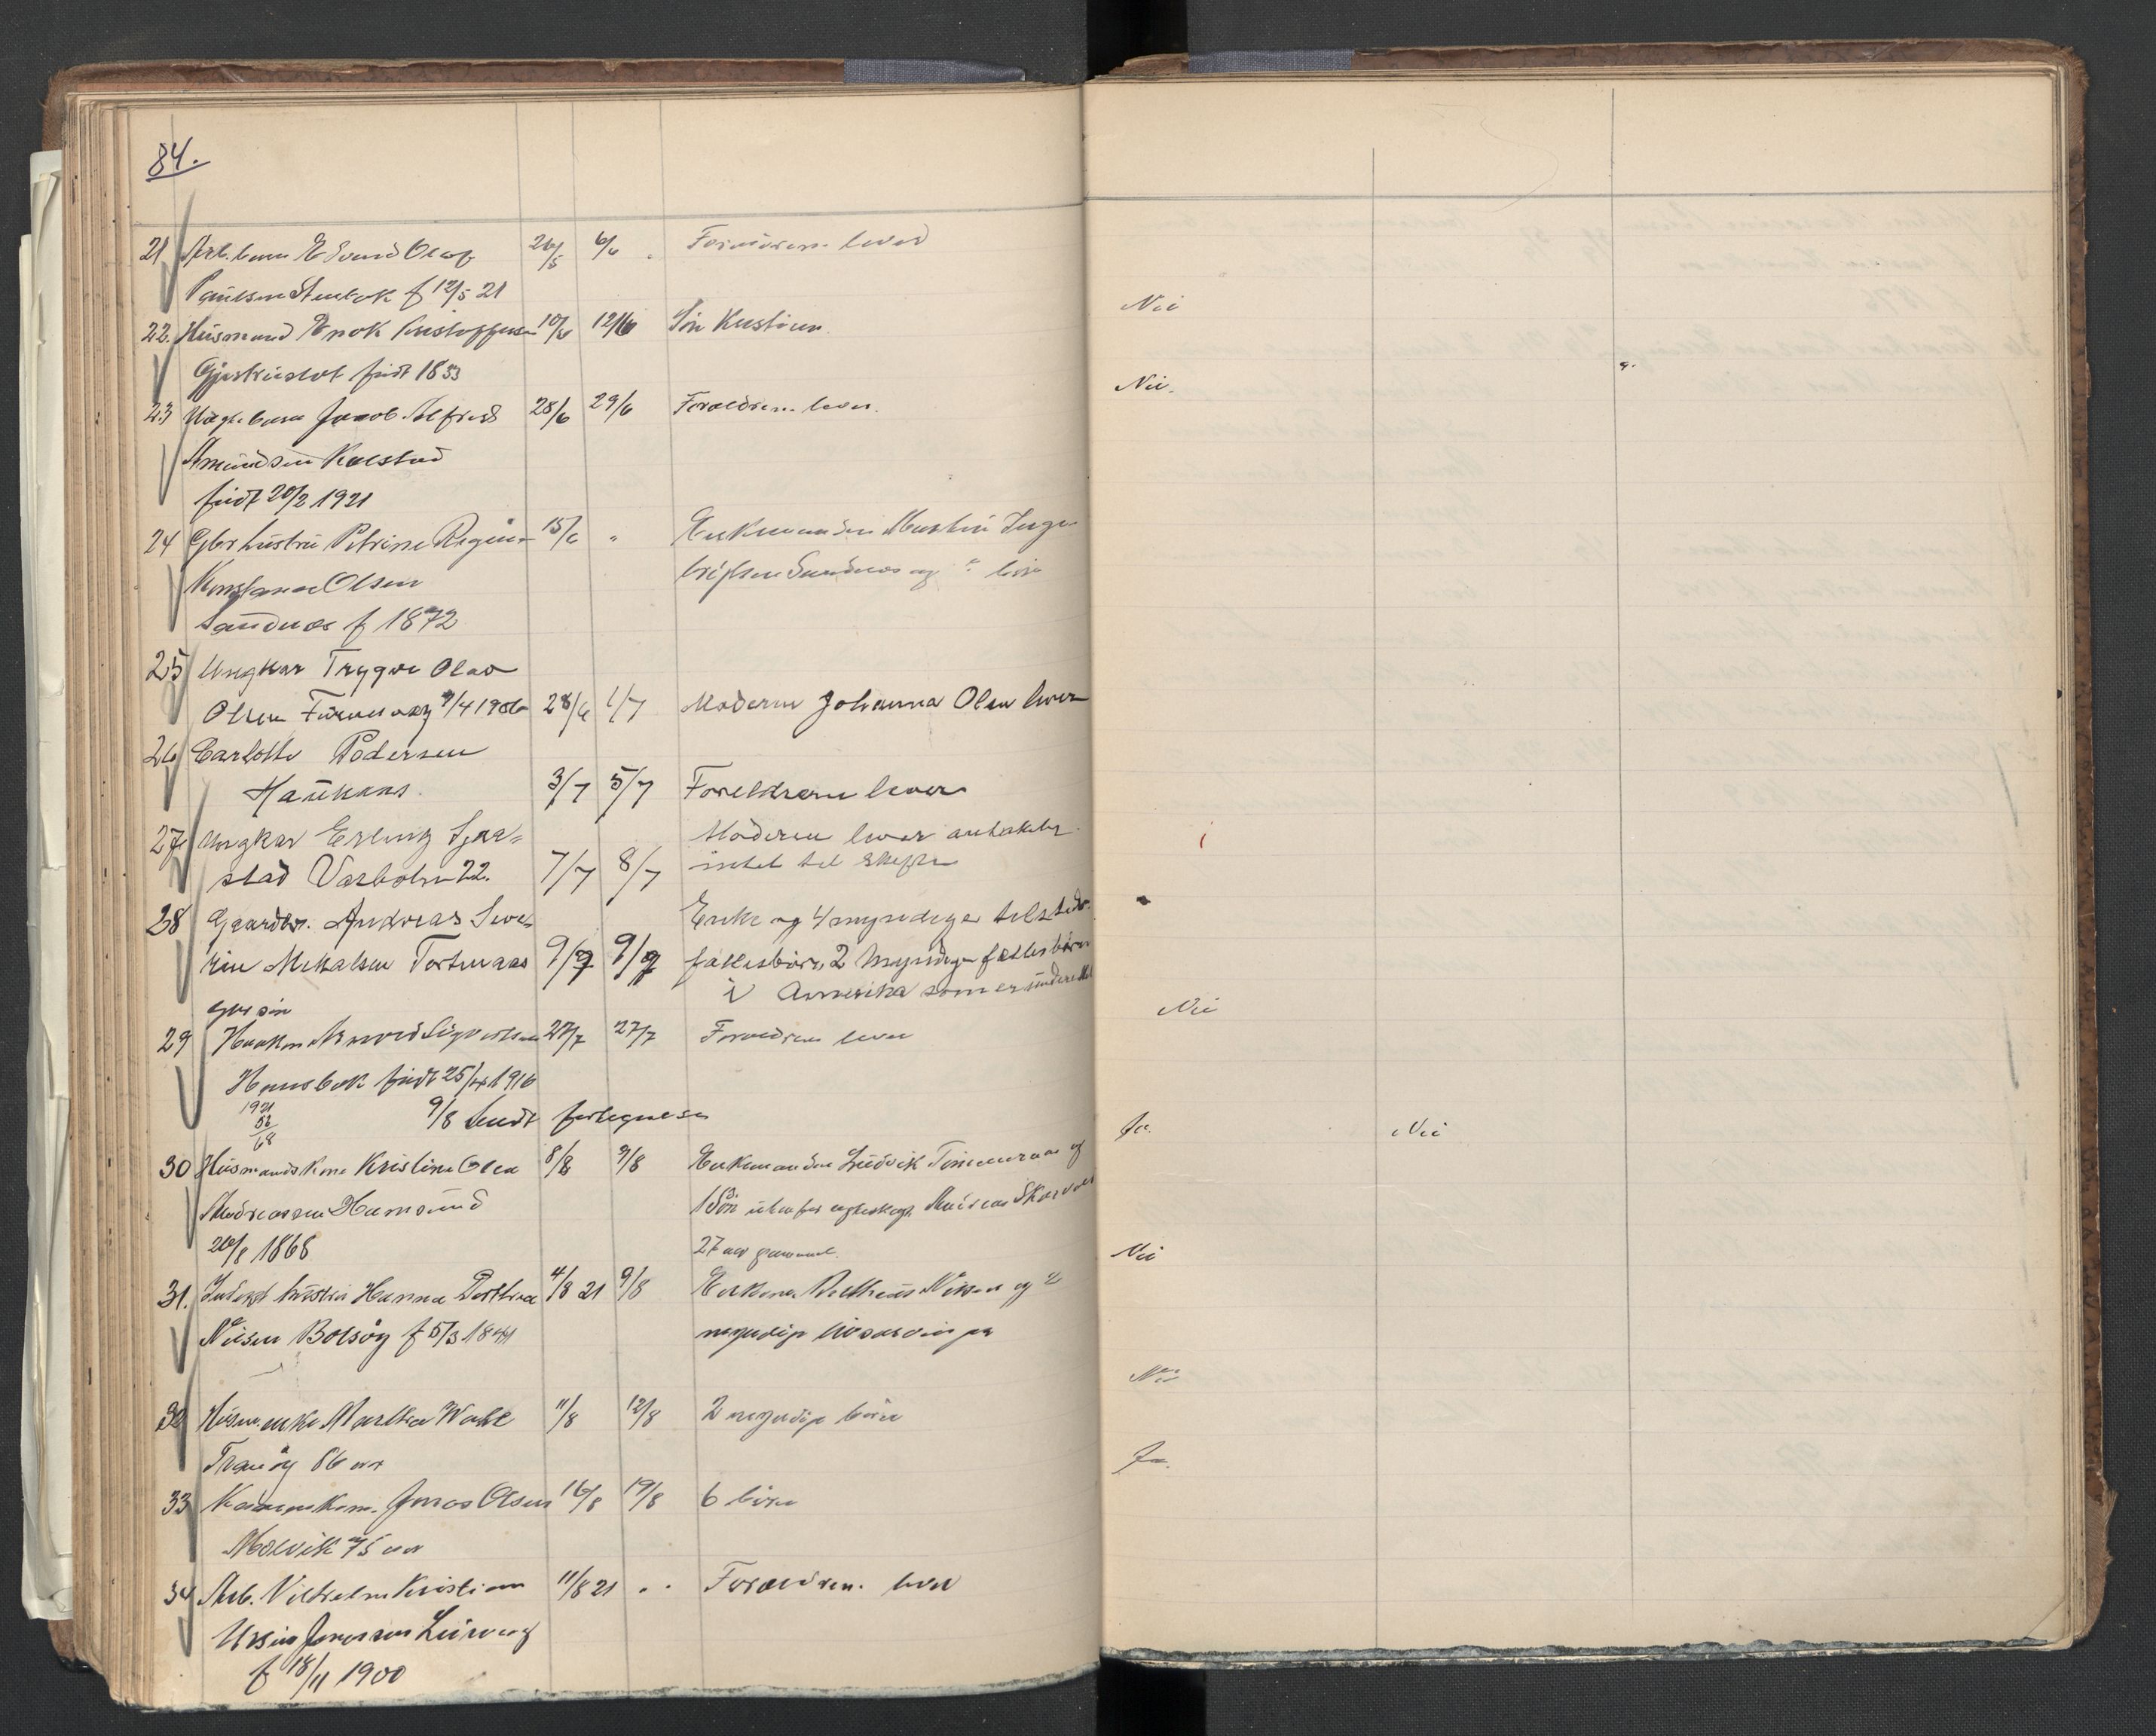 84.
21 Arb. barn Edvard Olaf 26/5 6/6 Forældrene lever
Paulsen Stenbak f 12/5 21
Nei
22. Husmand Enok Kristoffersen 10/6 12/6 Søn Kristian
født 1853
Nei.
23 barn Jacob Alfred 28/6 29/6 Forældrene lever.
Amundsen Kolstad
født 20/2 1921
24 Gbr hustru Petrine Regine 15/6 " Enkemanden Martin Inge-
Konstanse Olsen brigtsen Sandnes og børn
Sandnes f 1872
25 Ungkar Trygve Olav
Olsen 9/4 1906 28/6 1/7 Moderen Johanna Olsen lever
26 Carlotte Pedersen
Haukaas. 3/7 5/7 Foreldrene lever
27 Ungkar Erling Sjaa= Moderen lever antakelig
stad Varholm 22. 7/7 8/7 intet til skifte
28 Gaardbr. Andreas Seve- Enke og 4 myndige tilstede
rin Mikalsen Tortenaas 9/7 9/7 fællesbørn, 2 myndige fællesbørn
i Amerika som er underrettet
Nei
gbr søn
29 Haakon Arnold Sigvartsen 27/7 27/7 Forældrene lever
Hansbak født 25/4 1916
1921
53
68
9/8 Sendt fortegnelse
Ja. Nei
30 Husmandskone Kristine Olea 8/8 9/8 Enkemanden Ludvik Timmeraas og
Andreassen Hamsund 1 Søn utenfor egteskap. Andreas Skarvaas
20/8 1868 27 aar gammel.
Nei
31. Inderst hustru Hanna Dorthea 4/8 21 9/8 Enkem. Mathæus Nilsen og 2
Nilsen Bolsøy f 5/3 1841 myndige livsarvinger
Nei
32 Husm. enke Marthea Wahl 11/8 12/8 2 myndige børn
Tranøy 86 aar
Ja.
33 Jonas Olsen 16/8 19/8 6 børn
Molvik 75 aar
34 Arb. Vilhelm Kristian 11/8 21 " Forældrene lever
Ursin Jonassen
f 18/11 1900